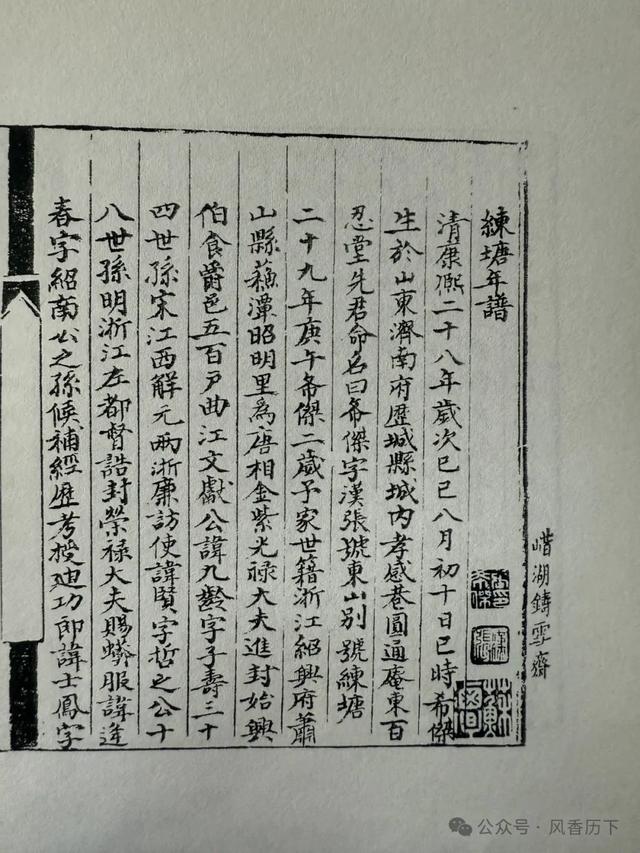 湖鑄雪齋
練塘年譜
清康熙二十八年歲次己巳八月初十日巳時希傑
生於山東濟南府歷城縣城內孝感巷圓通庵東百
忍堂先君命名曰希傑字漢張號東山別號練塘
二十九年庚午希傑二歲予家世籍浙江紹興府蕭
山縣潭昭明里為唐相金紫光祿大夫進封始興
伯食爵邑五百戶曲江文獻公諱九齡字子壽三十
四世孫宋江西解元兩浙廉訪使諱賢字哲之公十
八世孫明浙江左都督誥封榮祿大夫賜蟒服諱逢
春字紹南公之孫候補經歷考授迪功郎諱士鳳字
公众号·风香历下